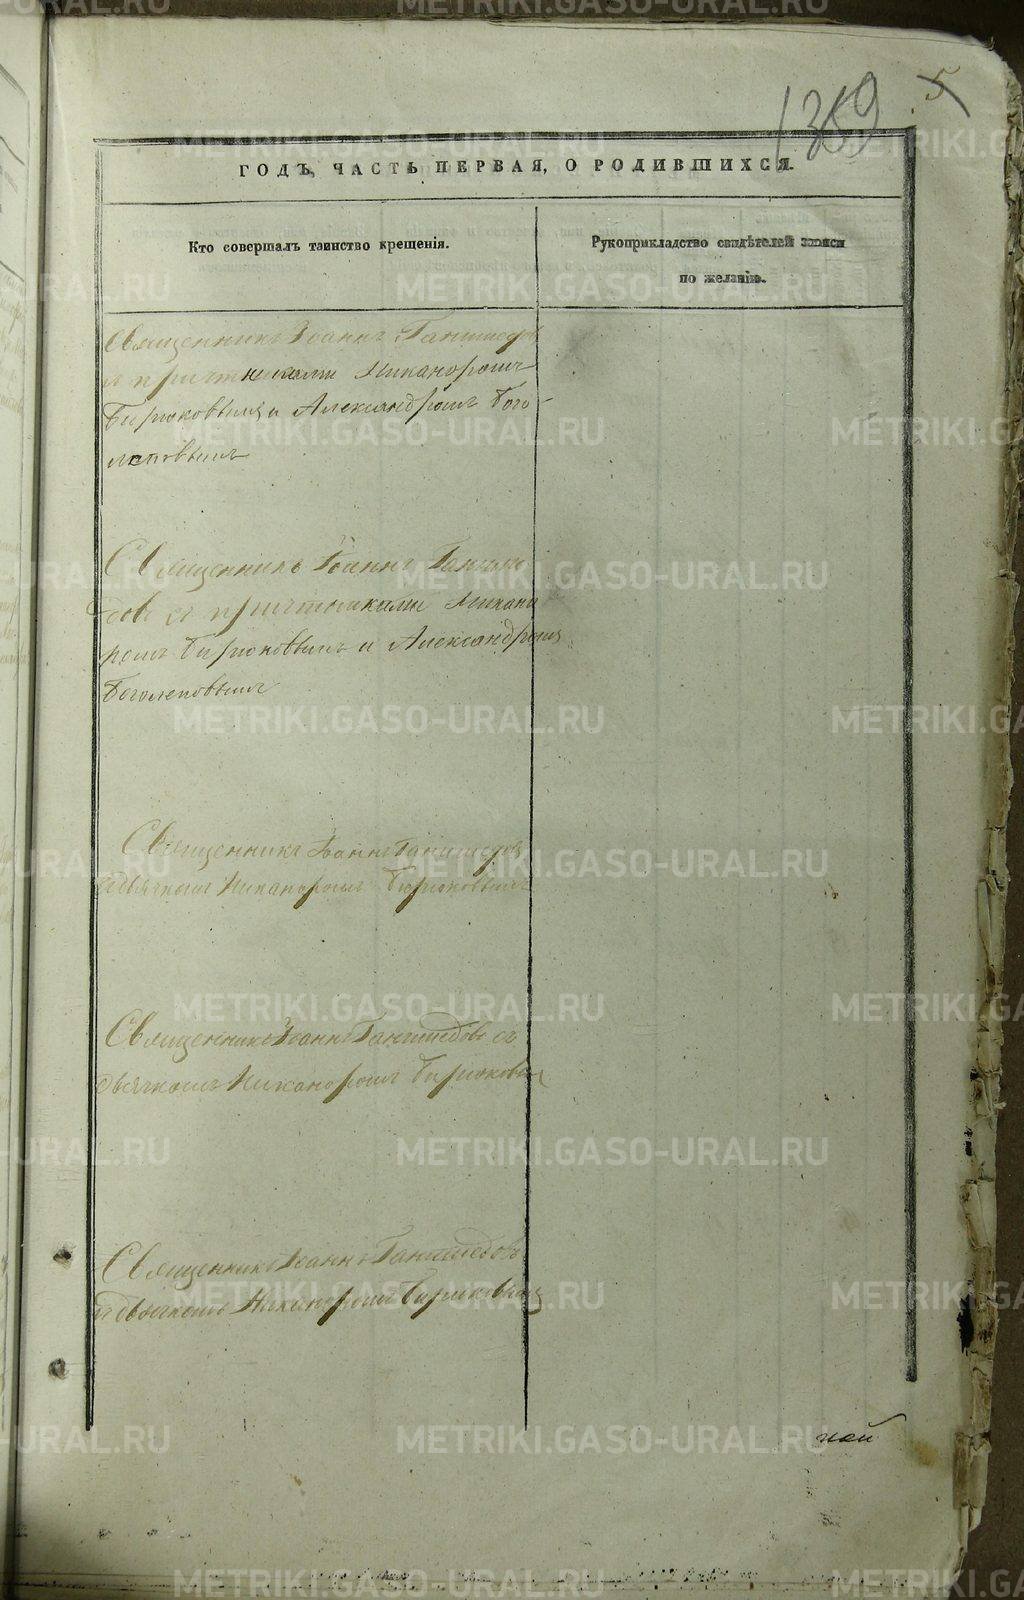 1369
5
ГОДЪ, ЧАСТЬ ПЕРВАЯ, О РОДИВШИХСЯ.
Кто совершалъ таинство крещенія.
Рукоприкладство свидѣтелей записи
по желанію.
Священникъ Іоаннъ
съ причтниками Никаноромъ
Бирюковымъ и Александромъ Бого-
леповымъ
Священникъ Іоаннъ
съ причтниками Никано
ромъ Бирюковымъ и Александромъ
Боголеповымъ
Священникъ Іоаннъ
дьячкомъ Никаноромъ Бирюковымъ
Священникъ Іоаннъ съ
дьячкомъ Никаноромъ Бирюковым
Священникъ Іоаннъ
дьячкомъ Никаноромъ Бирюковым
ной
METRIKI.GASO-URAL.RU